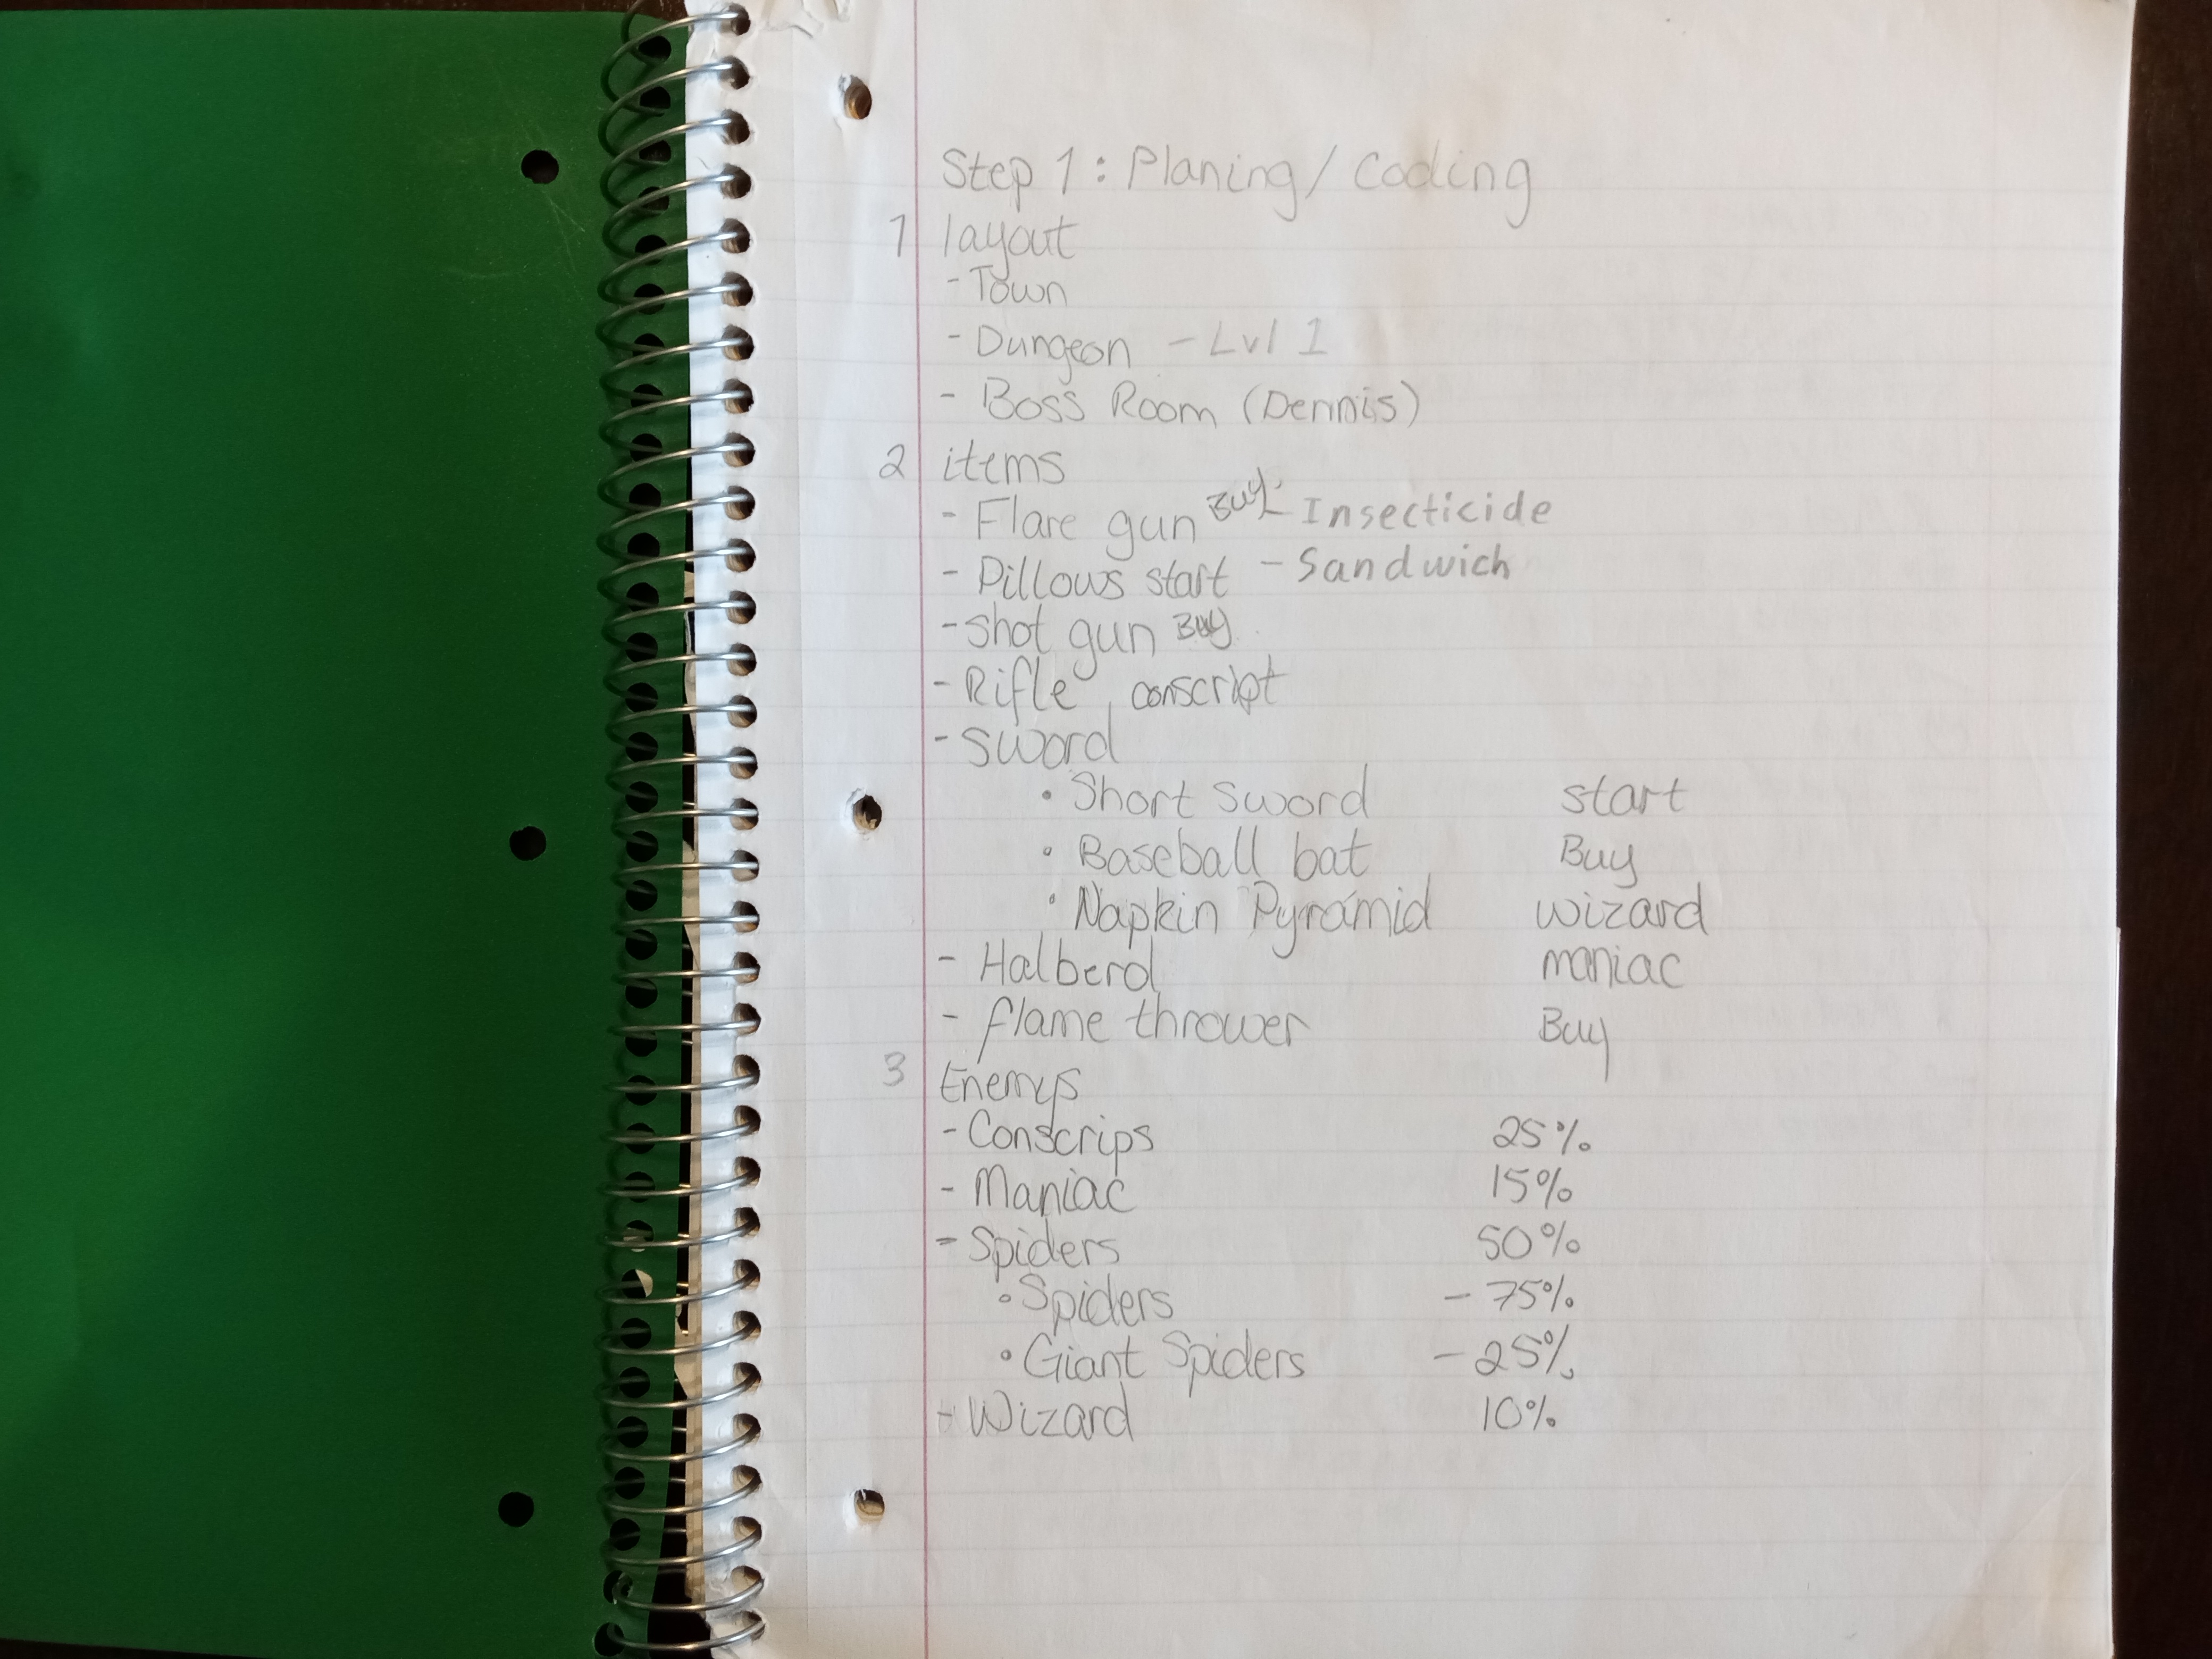 Step 1: Planing/Coding
1 layout
- Town
- Dungeon - Lvl 1
- Boss Room (Dennis)
2 items
- Flare gun Buy - Insecticide
- Pillows start - Sandwich
- shot gun Buy
- Rifle conscript
- sword
• Short sword start
• Baseball bat Buy
• Napkin Pyramid wizard
- Halberd maniac
- flame thrower Buy
3 Enemys
- Conscrips 25%
- Maniac 15%
- Spiders 50%
• Spiders - 75%
• Giant Spiders - 25%
- Wizard 10%